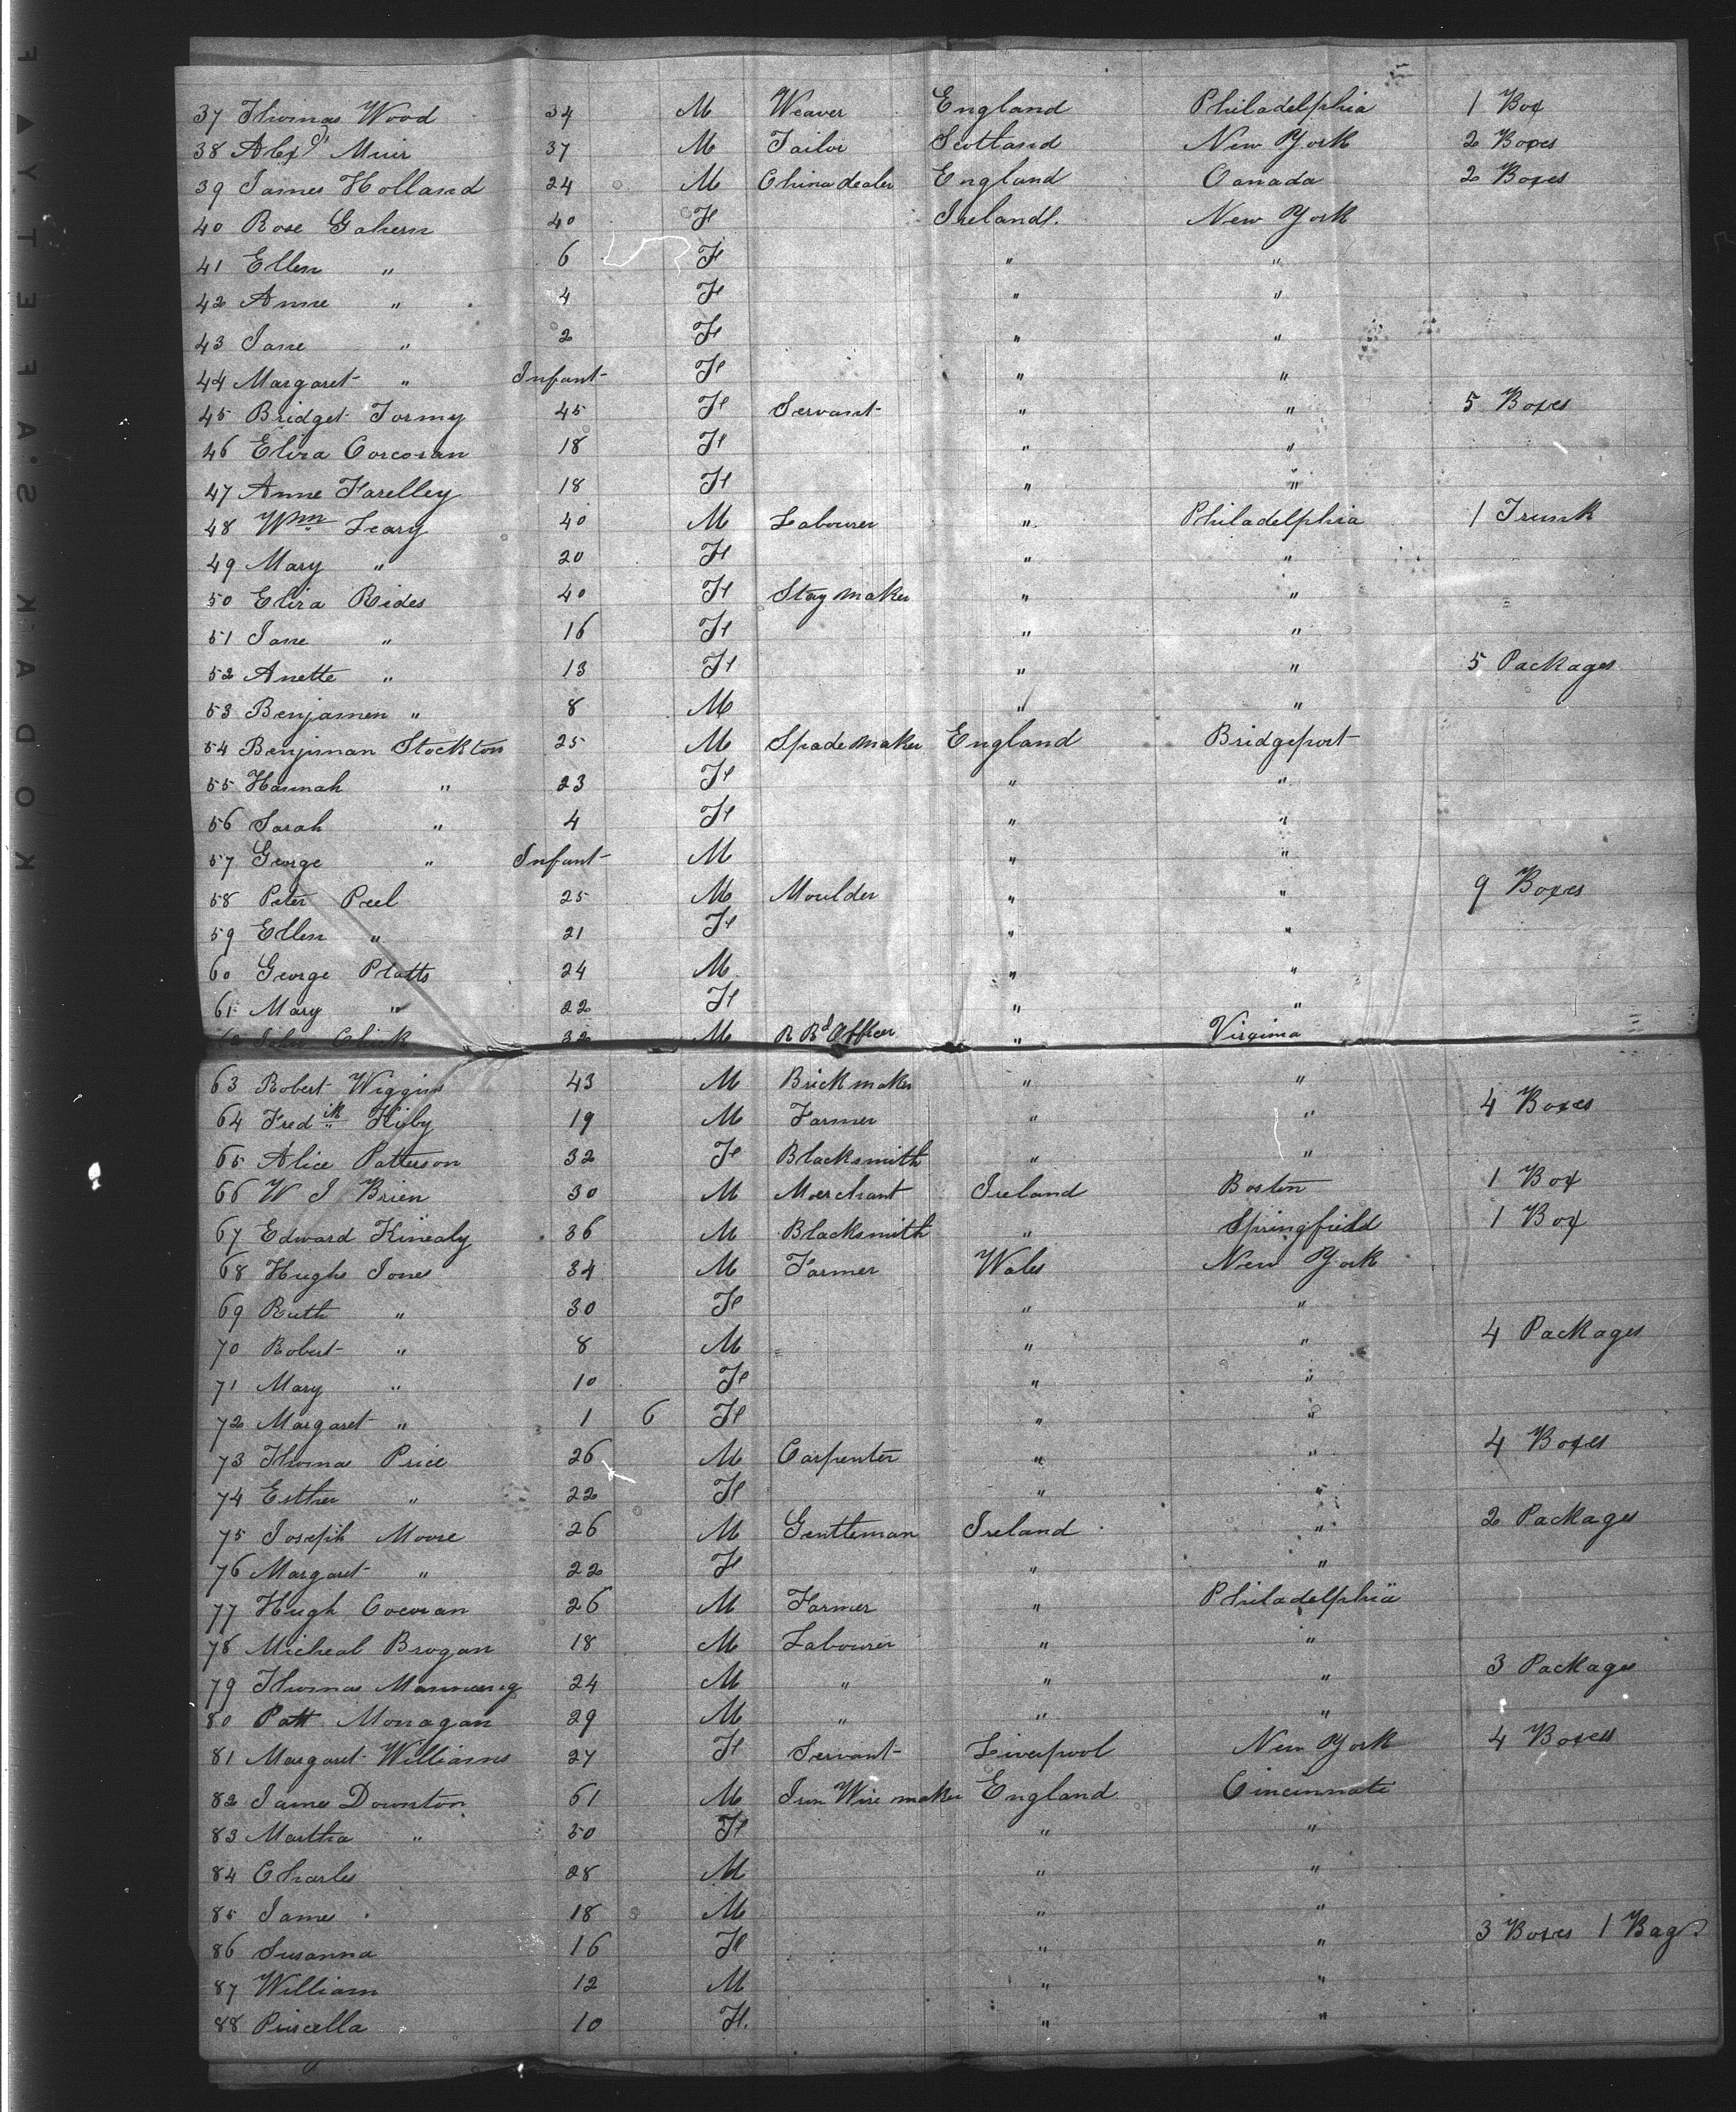 37 Thomas Wood 34 M Weaver England Philadelphia 1 Box
38 Alexd Muir 37 M Tailor Scotland New York 2 Boxes
39 James Holland 24 M China dealer England Canada 2 Boxes
40 Rose Gahern 40 F Ireland. New York
41 Ellen " 6 F " "
42 Anne " 4 F " "
43 Jane " 2 F " "
44 Margaret " Infant F " "
45 Bridget Tormy 45 F Servant " " 5 Boxes
46 Eliza Corcoran 18 F " "
47 Anne Farelley 18 F " "
48 Wm Leary 40 M Labourer " Philadelphia 1 Trunk
49 Mary " 20 F " "
50 Eliza Rides 40 F Stay maker " "
51 Jane " 16 F " "
52 Anette " 13 F " " 5 Packages
53 Benjamen " 8 M " "
54 Benjiman Stockton 25 M Spade maker England Bridgeport
55 Hannah " 23 F " "
56 Sarah " 4 F " "
57 George " Infant M " "
58 Peter Peel 25 M Moulder " " 9 Boxes
59 Ellen " 21 F " "
60 George Platts 24 M " "
61 Mary " 22 F " "
62 John Click 32 M R Rd Officer " Virginia
63 Robert Wiggins 43 M Brick maker " "
64 Fredik Kirby 19 M Farmer " " 4 Boxes
65 Alice Patterson 32 F Blacksmith " "
66 W J Brien 30 M Merchant Ireland Boston 1 Box
67 Edward Kinealy 36 M Blacksmith " Springfield 1 Box
68 Hughs Jones 34 M Farmer Wales New York
69 Ruth " 30 F " "
70 Robert " 8 M " " 4 Packages
71 Mary " 10 F " "
72 Margaret " 1 6 F " "
73 Thomas Price 26 M Carpenter " " 4 Boxes
74 Esther " 22 F " "
75 Joseph Moore 26 M Gentleman Ireland " 2 Packages
76 Margaret " 22 F " "
77 Hugh Cocoran 26 M Farmer " Philadelphia
78 Micheal Brogan 18 M Labourer " "
79 Thomas 24 M " " " 3 Packages
80 Patt Monagan 29 M " " "
81 Margaret Williams 27 F Servant Liverpool New York 4 Boxes
82 James Downton 61 M Iron Wire maker England Cincinnati
83 Martha " 50 F " "
84 Charles 28 M " "
85 James 18 M " "
86 Susanna 16 F " " 3 Boxes 1 Bag
87 William 12 M " "
88 Priscella 10 F. " "
KODAK·SAFETY